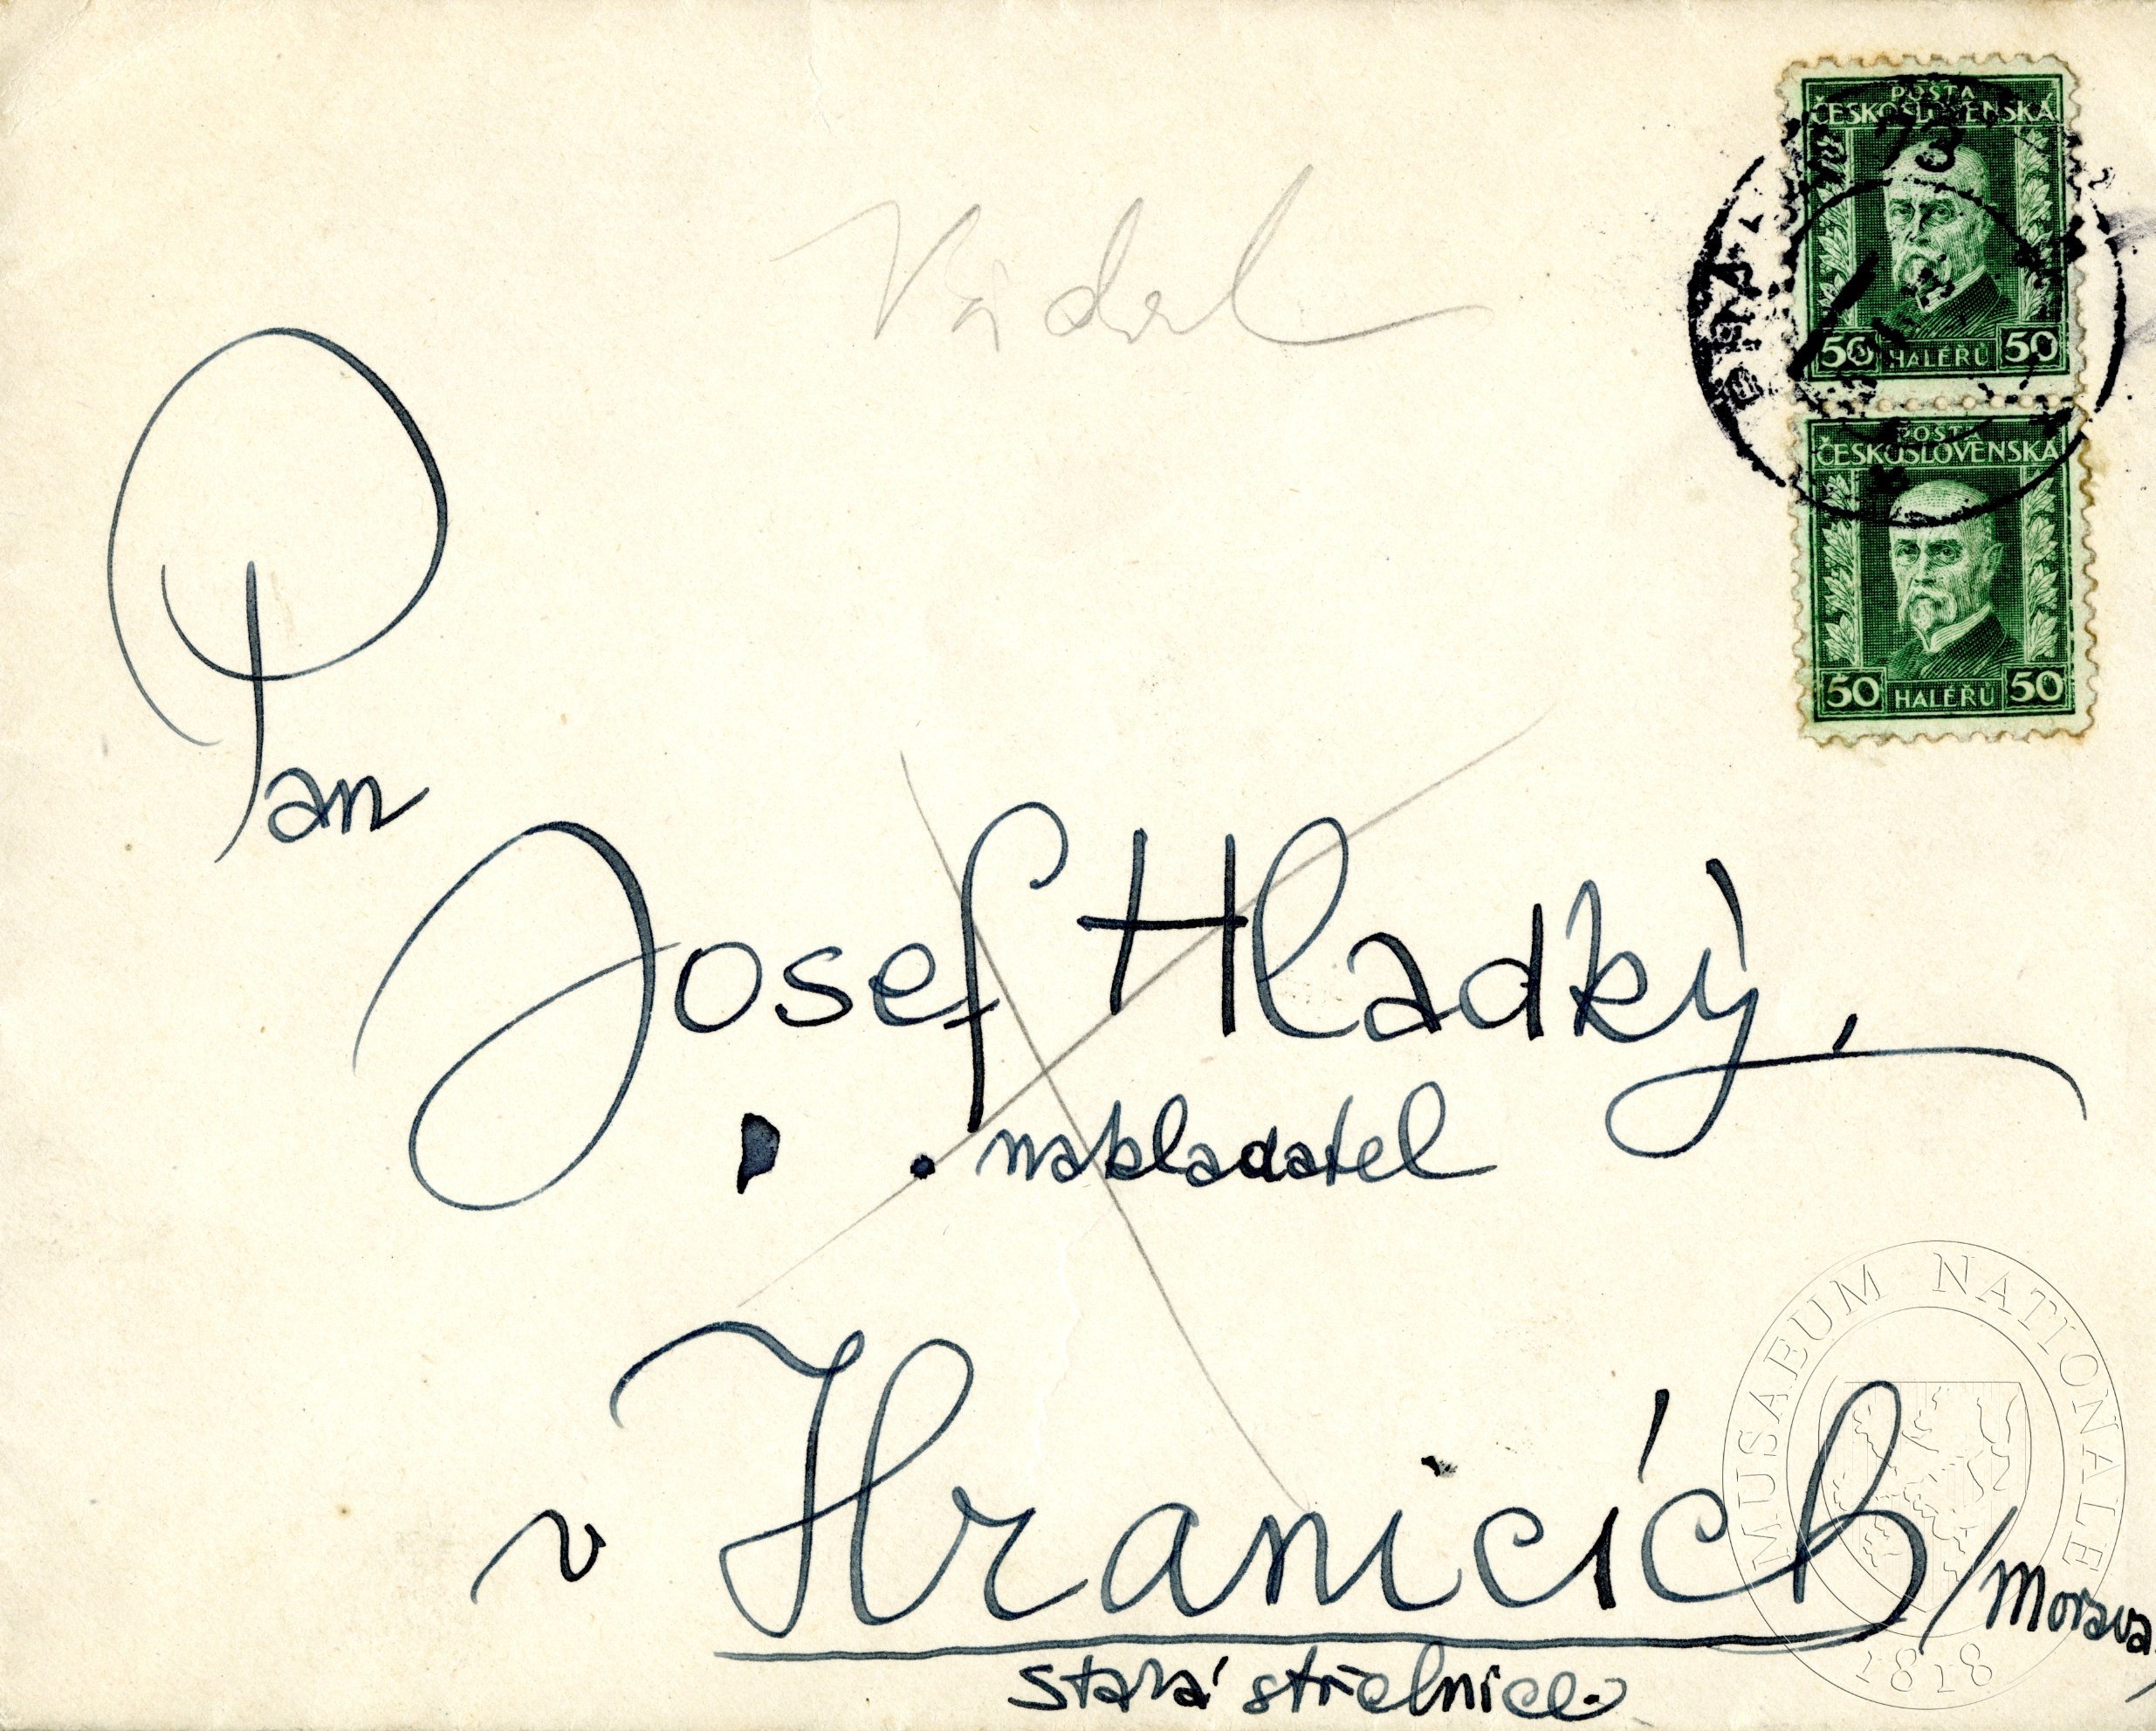 POŠTA
ČESKOSLOVENSKÁ
73
50 HALÉŘŮ 50
POSTA
ČESKOSLOVENSKÁ
50 HALÉŘŮ 50
Pan
Josef Hladký,
nakladatel
v Hranicích /Morava/
Stará střelnice.
MUSAEUM NATIONALE
1818